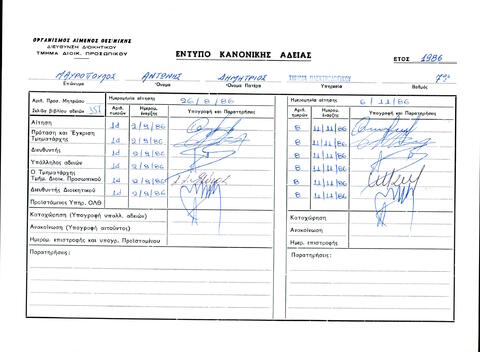 ΟΡΓΑΝΙΣΜΟΣ ΛΙΜΕΝΟΣ ΘΕΣ/ΝΙΚΗΣ
ΔΙΕΥΘΥΝΣΗ ΔΙΟΙΚΗΤΙΚΟΥ
ΤΜΗΜΑ ΔΙΟΙΚ. ΠΡΟΣΩΠΙΚΟΥ
ΕΝΤΥΠΟ ΚΑΝΟΝΙΚΗΣ ΑΔΕΙΑΣ
ΕΤΟΣ 1986
ΜΑΥΡΟΠΟΥΛΟΣ ΑΝΤΩΝΗΣ ΔΗΜΗΤΡΙΟΣ 7ος
Επώνυμο Όνομα Όνομα Πατέρα Υπηρεσία Βαθμός
Αριθ. Προσ. Μητρώου
Σελίδα βιβλίου αδειών 351
Ημερομηνία αίτησης 26/8/86
Ημερομηνία αίτησης 6/11/86
Αριθ. ημερών Ημερομ. έναρξης Υπογραφή και Παρατηρήσεις
Αριθ. ημερών Ημερομ. έναρξης Υπογραφή και Παρατηρήσεις
Αίτηση 1d 2/9/86 8 11/11/86
Πρόταση και Έγκριση Τμηματάρχη 1d 2/9/86 8 11/11/86
Διευθυντή 1d 2/9/86 8 11/11/86
Υπάλληλος αδειών 1d 2/9/86 8 11/11/86
Ο Τμηματάρχης Τμήμ. Διοικ. Προσωπικού 1d 2/9/86 8 11/11/86
Διευθυντή Διοικητικού 1d 2/9/86 8 11/11/86
Προϊστάμενος Υπηρ. ΟΛΘ
Καταχώρηση (Υπογραφή υπαλλ. αδειών) Καταχώρηση
Ανακοίνωση (Υπογραφή αιτούντος) Ανακοίνωση
Ημερομ. επιστροφής και υπογρ. Προϊσταμένου Ημερ. επιστροφής
Παρατηρήσεις: Παρατηρήσεις: